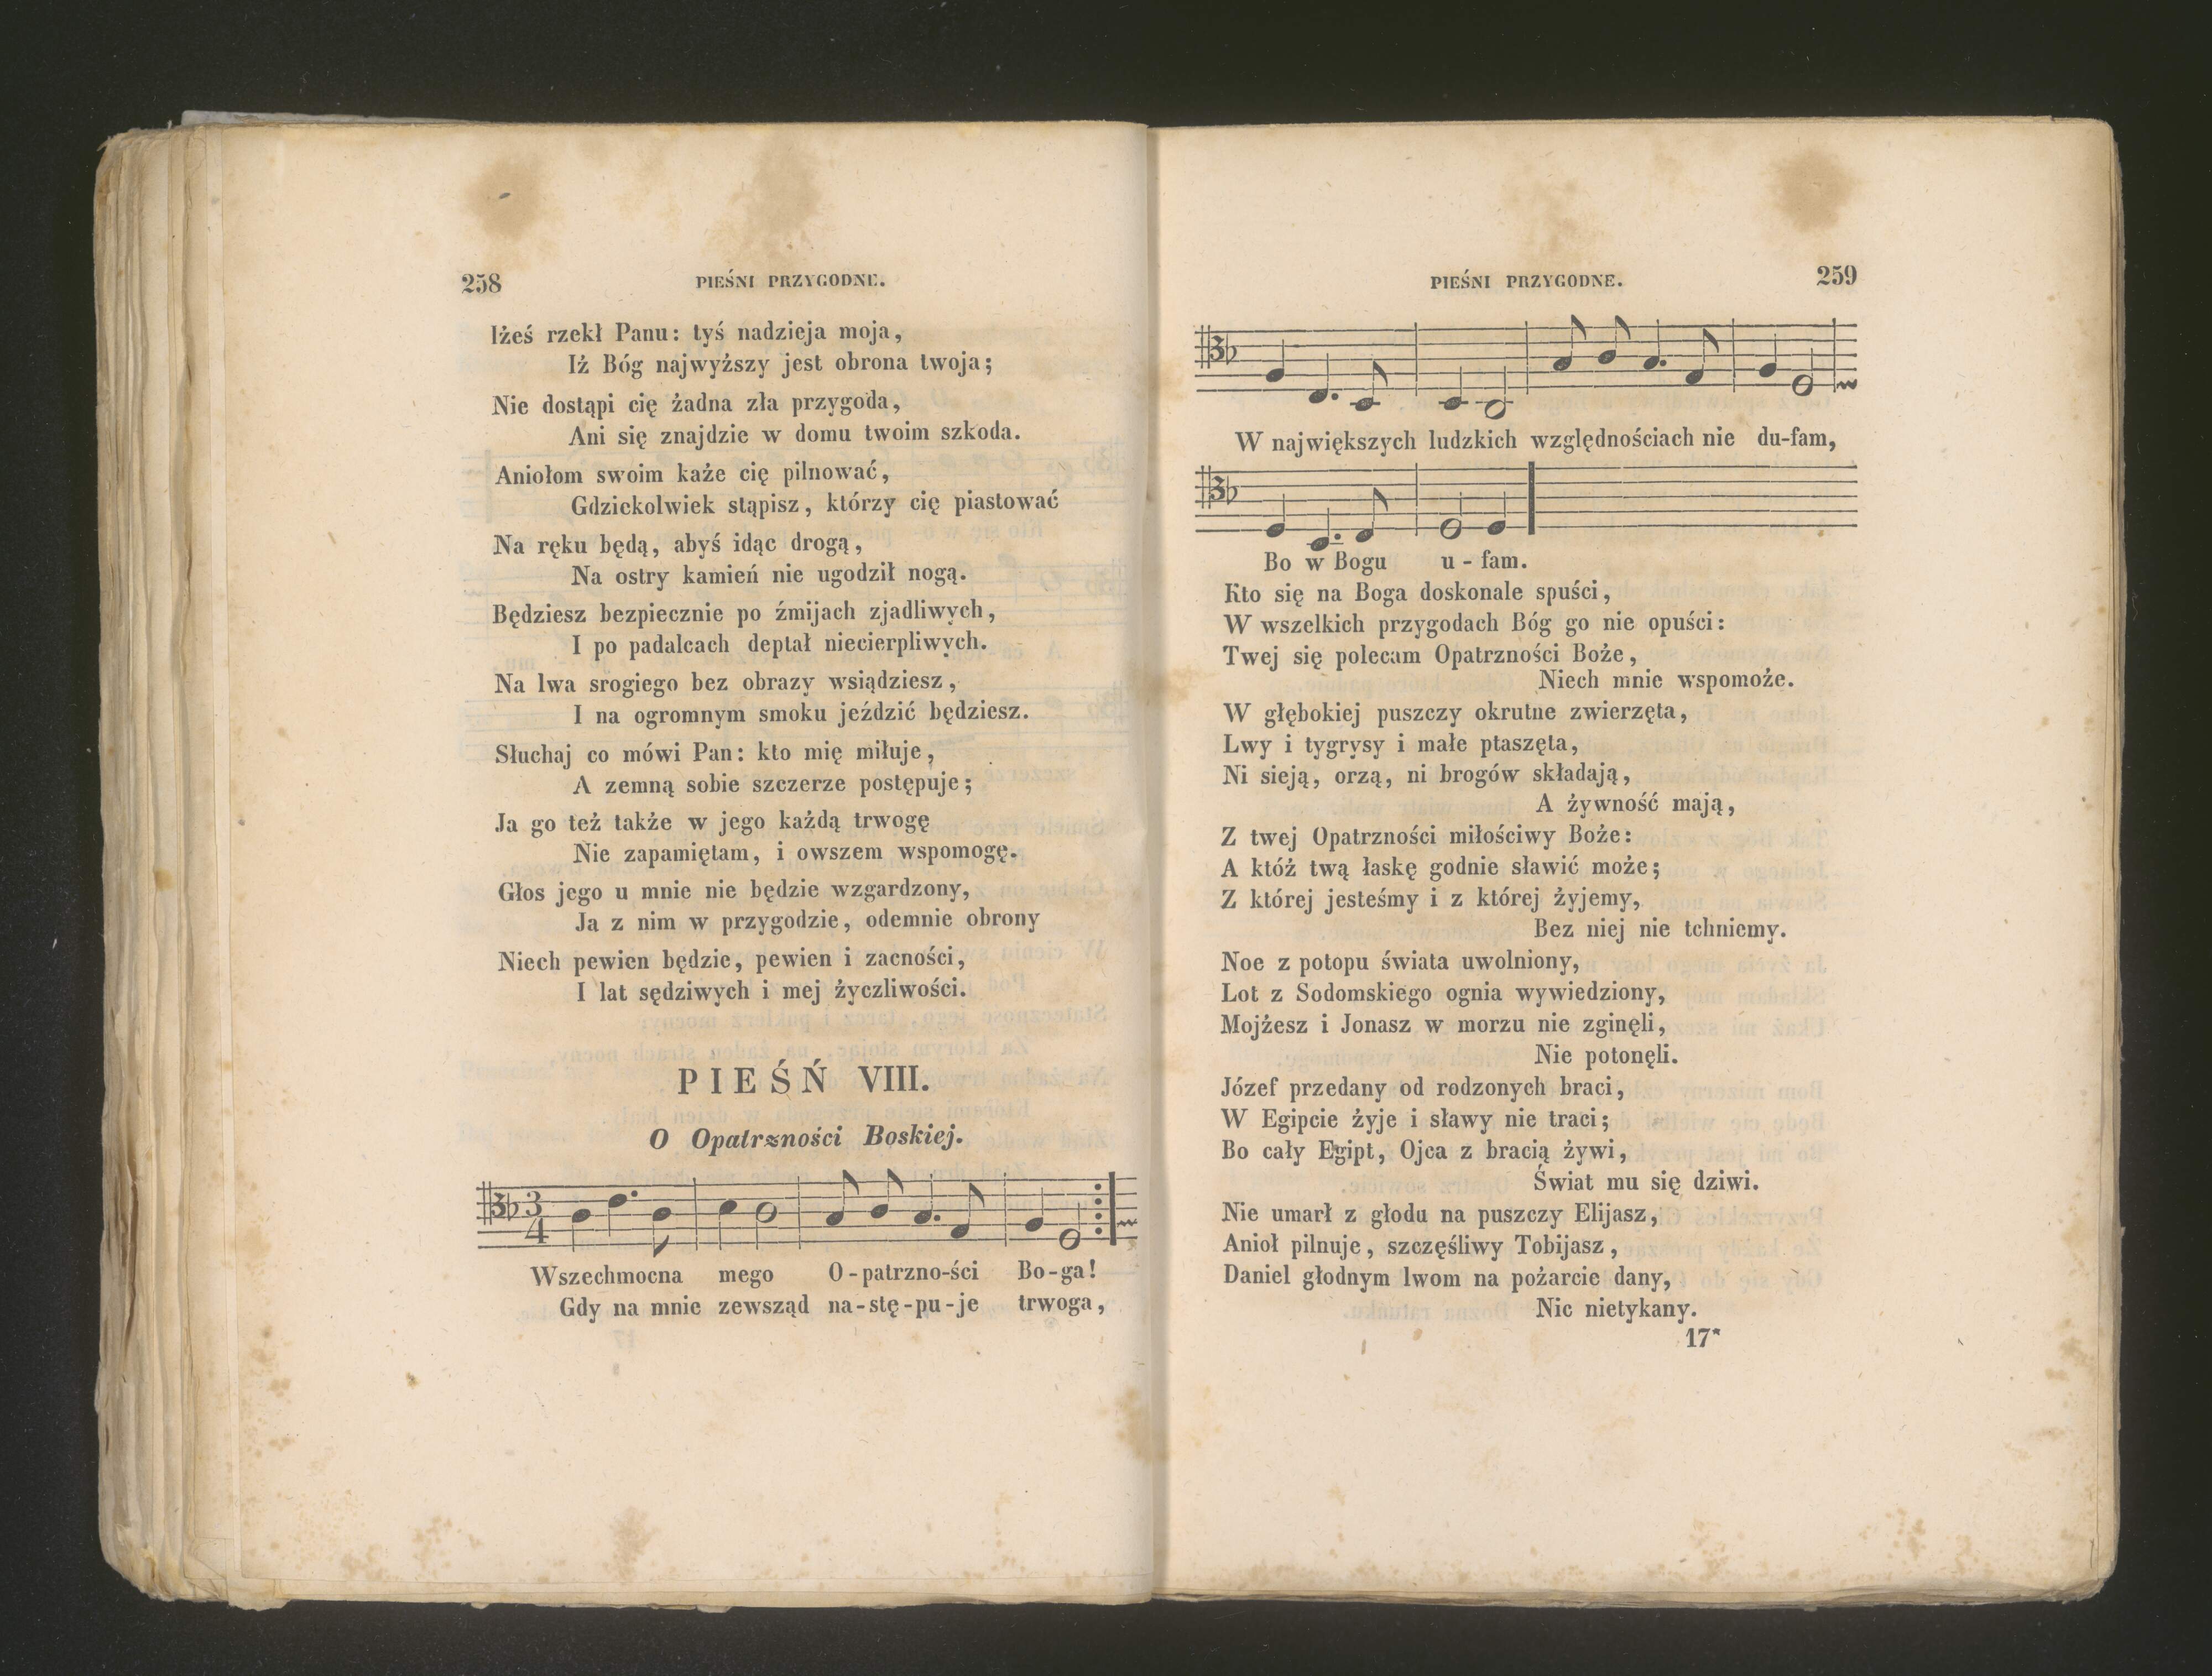 258
PIEŚNI PRZYGODNE.
Iżeś rzekł Panu: tyś nadzieja moja,
Iż Bóg najwyższy jest obrona twoja;
Nie dostąpi cię żadna zła przygoda,
Ani się znajdzie w domu twoim szkoda.
Aniołom swoim każe cię pilnować,
Gdziekolwiek stąpisz, którzy cię piastować
Na ręku będą, abyś idąc drogą,
Na ostry kamień nie ugodził nogą.
Będziesz bezpiecznie po źmijach zjadliwych,
I po padalcach deptał niecierpliwych.
Na lwa srogiego bez obrazy wsiądziesz,
I na ogromnym smoku jeździć będziesz.
Słuchaj co mówi Pan: kto mię miłuje,
A zemną sobie szczerze postępuje;
Ja go też także w jego każdą trwogę
Nie zapamiętam, i owszem wspomogę.
Głos jego u mnie nie będzie wzgardzony,
Ja z nim w przygodzie, odemnie obrony
Niech pewien będzie, pewien i zacności,
I lat sędziwych i mej życzliwości.
PIEŚŃ VIII.
O Opatrzności Boskiej.
3
4
Wszechmocna mego O-patrzno-ści Bo-ga!
Gdy na mnie zewsząd na-stę-pu-je trwoga,
PIEŚNI PRZYGODNE.
259
W największych ludzkich względnościach nie du-fam,
Bo w Bogu u - fam.
Kto się na Boga doskonale spuści,
W wszelkich przygodach Bóg go nie opuści:
Twej się polecam Opatrzności Boże,
Niech mnie wspomoże.
W głębokiej puszczy okrutne zwierzęta,
Lwy i tygrysy i małe ptaszęta,
Ni sieją, orzą, ni brogów składają,
A żywność mają,
Z twej Opatrzności miłościwy Boże:
A któż twą łaskę godnie sławić może;
Z której jesteśmy i z której żyjemy,
Bez niej nie tchniemy.
Noe z potopu świata uwolniony,
Lot z Sodomskiego ognia wywiedziony,
Mojżesz i Jonasz w morzu nie zginęli,
Nie potonęli.
Józef przedany od rodzonych braci,
W Egipcie żyje i sławy nie traci;
Bo cały Egipt, Ojca z bracią żywi,
Świat mu się dziwi.
Nie umarł z głodu na puszczy Elijasz,
Anioł pilnuje, szczęśliwy Tobijasz,
Daniel głodnym lwom na pożarcie dany,
Nic nietykany.
17*